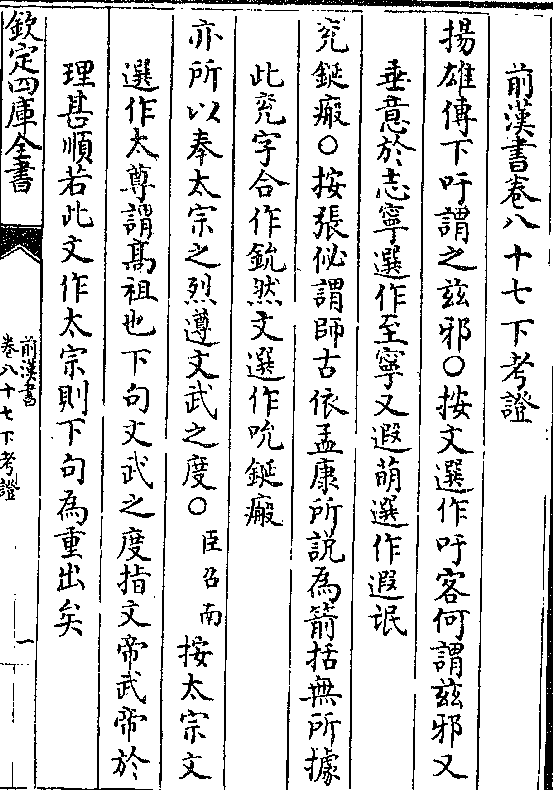 前漢書卷八十七下考證
揚雄傳下吁謂之兹邪○按文選作吁客何謂兹邪又
垂意於志寧選作至寧又遐萌選作遐氓
兖鋋瘢○按張佖謂師古依孟康所説為箭括無所據
此兖字合作鈗然文選作吮鋋瘢
亦所以奉太宗之烈遵文武之度○臣召南按太宗文
選作太尊謂髙祖也下句文武之度指文帝武帝於
理甚順若此文作太宗則下句為重出矣
欽定四庫全書
前漢書
卷八十七下考證
一